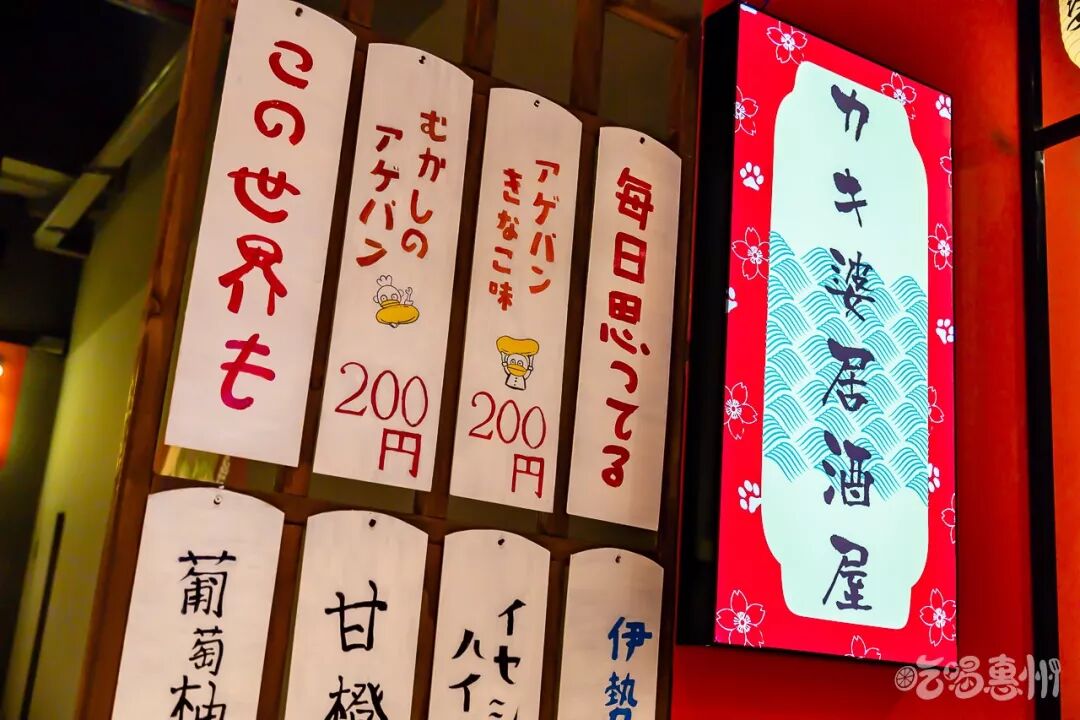 この世界も
むかしの
アゲバン
200
円
アゲバン
きなこ味
200
円
毎日思ってる
カキ婆居酒屋
葡萄柚
甘橙
イセシ
ハイ
伊勢
吃喝惠州